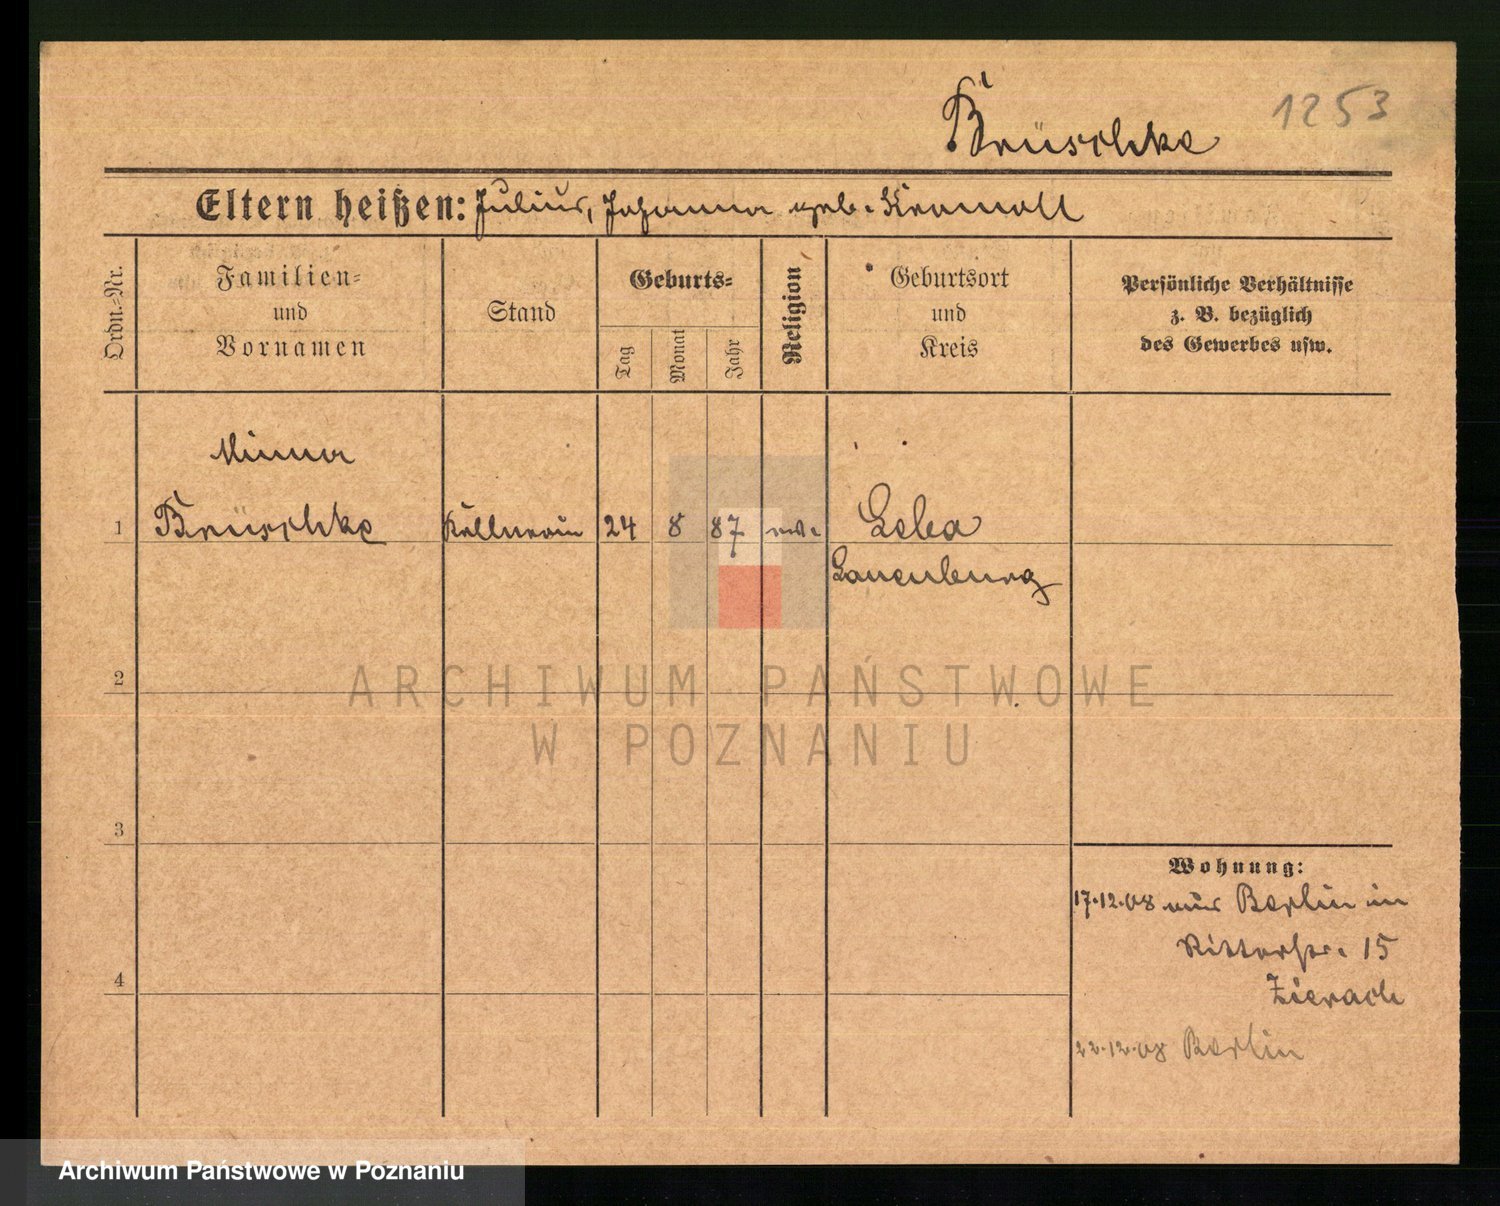 Brüschke 1253
Eltern heißen: Julius, Johanna geb. Kramoll
Ordn.=Nr.
Familien=
und
Vornamen
Stand
Geburts=
Tag
Monat
Jahr
Religion
Geburtsort
und
Kreis
Persönliche Verhältnisse
z. B. bezüglich
des Gewerbes usw.
Minna
1 Brüschke Kellnerin 24 8 87 ev. Leba
Lauenburg
2
3
4
Wohnung:
17.12.08 aus Berlin in
Ritterstr. 15
Zierach
22.12.08 Berlin
ARCHIWUM PAŃSTWOWE
W POZNANIU
Archiwum Państwowe w Poznaniu